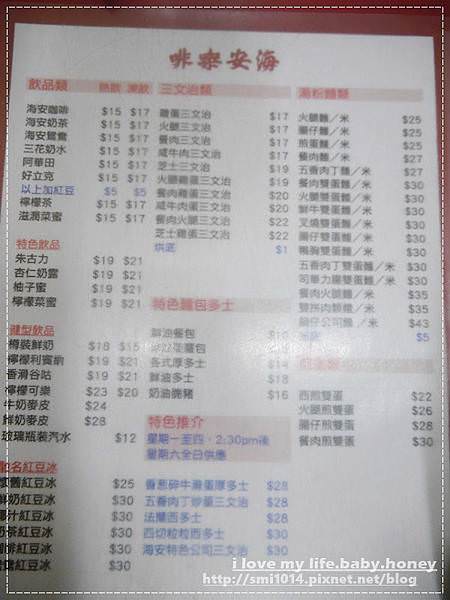 啡樂安海
飲品類 熱飲 凍飲
海安咖啡 $15 $17
海安奶茶 $15 $17
海安鴛鴦 $15 $17
三花奶水 $15 $17
阿華田 $15 $17
好立克 $15 $17
以上加紅豆 $5 $5
檸檬茶 $15 $17
滋潤菜蜜 $15 $17
特色飲品
朱古力 $19 $21
杏仁奶露 $19 $21
柚子蜜 $19 $21
檸檬菜蜜 $19 $21
飲品
樽裝鮮奶 $18 $15
檸檬利賓納 $19 $21
香滑谷咕 $19 $21
檸檬可樂 $23 $20
牛奶麥皮 $24
鮮奶麥皮 $28
玻璃瓶裝汽水 $12
名紅豆冰
舊紅豆冰 $25
鮮奶紅豆冰 $30
椰汁紅豆冰 $30
奶茶紅豆冰 $30
咖啡紅豆冰 $30
紅豆冰 $30
三文治類
雞蛋三文治 $17
火腿三文治 $17
餐肉三文治 $17
咸牛肉三文治 $17
芝士三文治 $19
火腿雞蛋三文治 $19
餐肉雞蛋三文治 $20
咸牛肉蛋三文治 $20
餐肉火腿三文治 $22
芝士雞蛋三文治 $22
烘底 $1
特色麵包多士
鮮油餐包
各式厚多士 $14
鮮油多士 $14
奶油脆豬 $16
特色推介
星期一至四，2:30pm後
星期六全日供應
香蔥碎牛滑蛋厚多士 $28
五香肉丁炒蛋三文治 $28
法蘭西多士 $28
西切粒粒西多士 $30
海安特色公司三文治 $30
湯粉麵類
火腿麵／米 $25
腸仔麵／米 $25
煎蛋麵／米 $25
餐肉麵／米 $27
五香肉丁麵／米 $27
餐肉雙蛋麵／米 $30
火腿雙蛋麵／米 $30
鮮牛雙蛋麵／米 $30
叉燒雙蛋麵／米 $30
腸仔雙蛋麵／米 $30
鴨胸雙蛋麵／米 $30
五香肉丁雙蛋麵／米 $30
司華力腸雙蛋麵／米 $30
餐肉火腿麵／米 $35
雙拼肉類麵／米 $35
腸仔公司麵／米 $43
$5
西煎雙蛋 $22
火腿煎雙蛋 $26
腸仔煎雙蛋 $28
餐肉煎雙蛋 $30
i love my life.baby.honey
http://smi1014.pixnet.net/blog